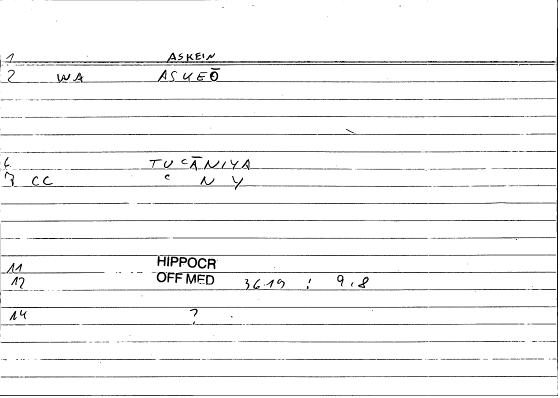 1 ASKEIN
2 WA ASKEŌ
6 TU ʿĀNIYA
7 CC ʿ N Y
11 HIPPOCR
12 OFF MED 36.19 : 9.8
14 ?